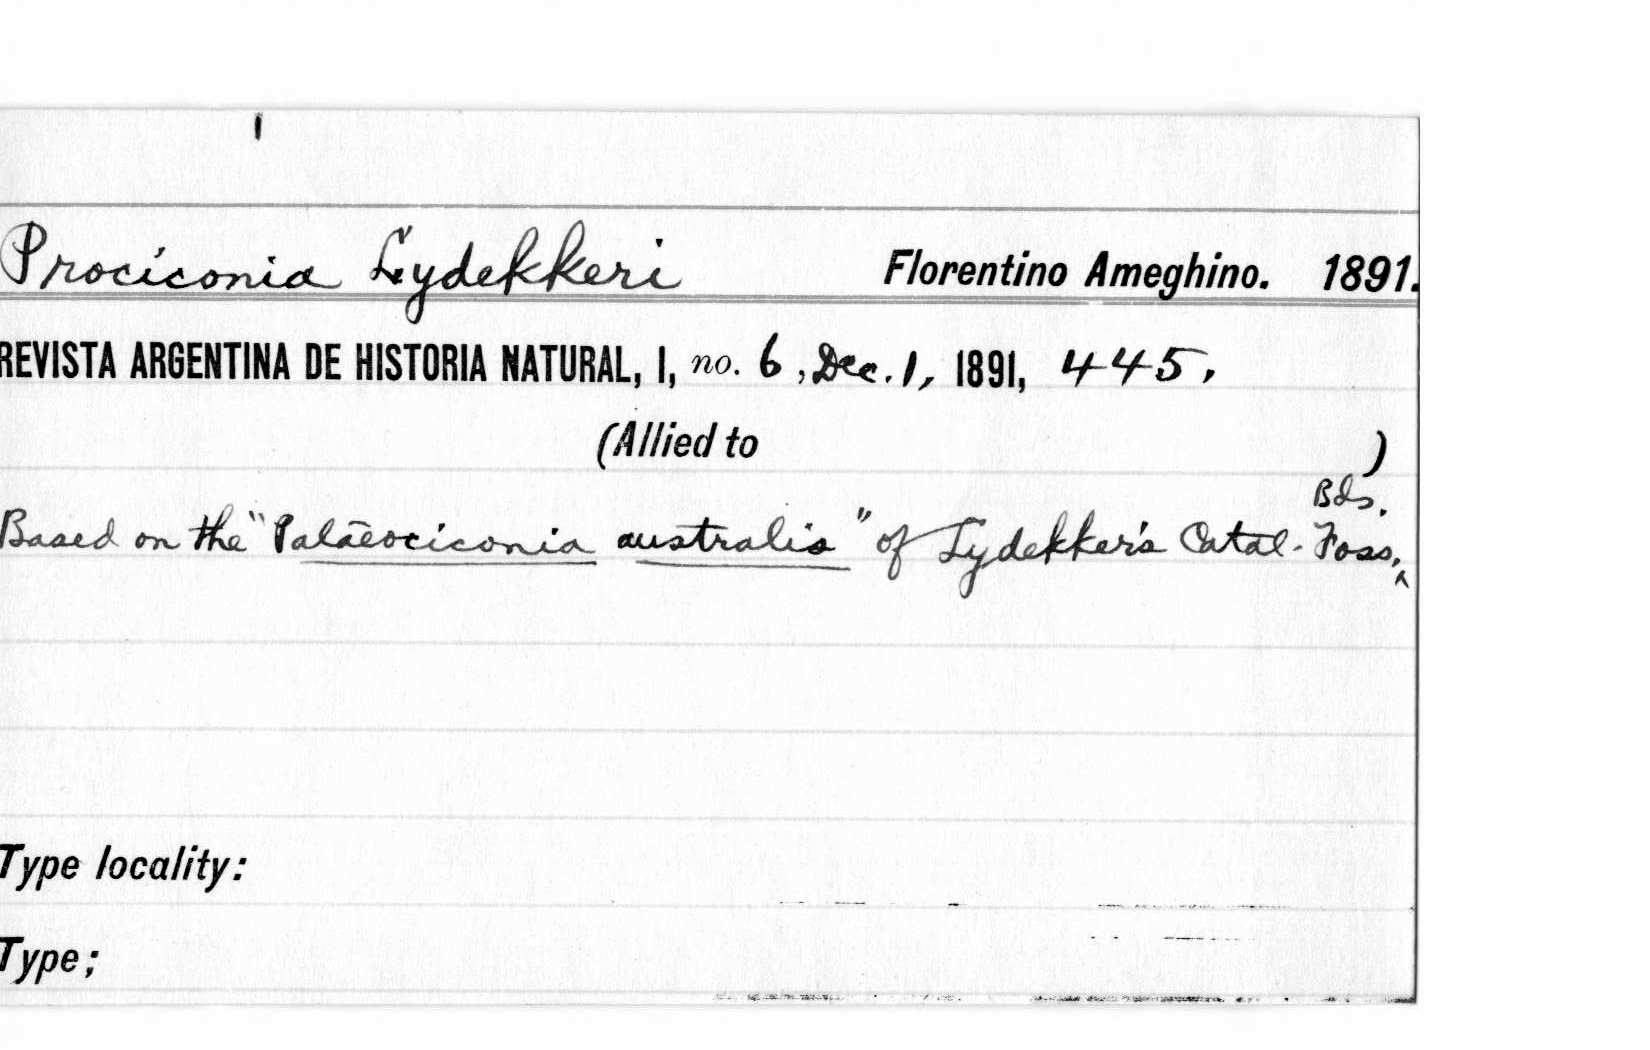 Prociconia Lydekkeri Florentino Ameghino. 1891.
REVISTA ARGENTINA DE HISTORIA NATURAL, I, no. 6, Dec. 1, 1891, 445.
(Allied to )
Bds.
Based on the "Palaeociconia australis" of Lydekker's Catal. Foss. ^
Type locality:
Type;